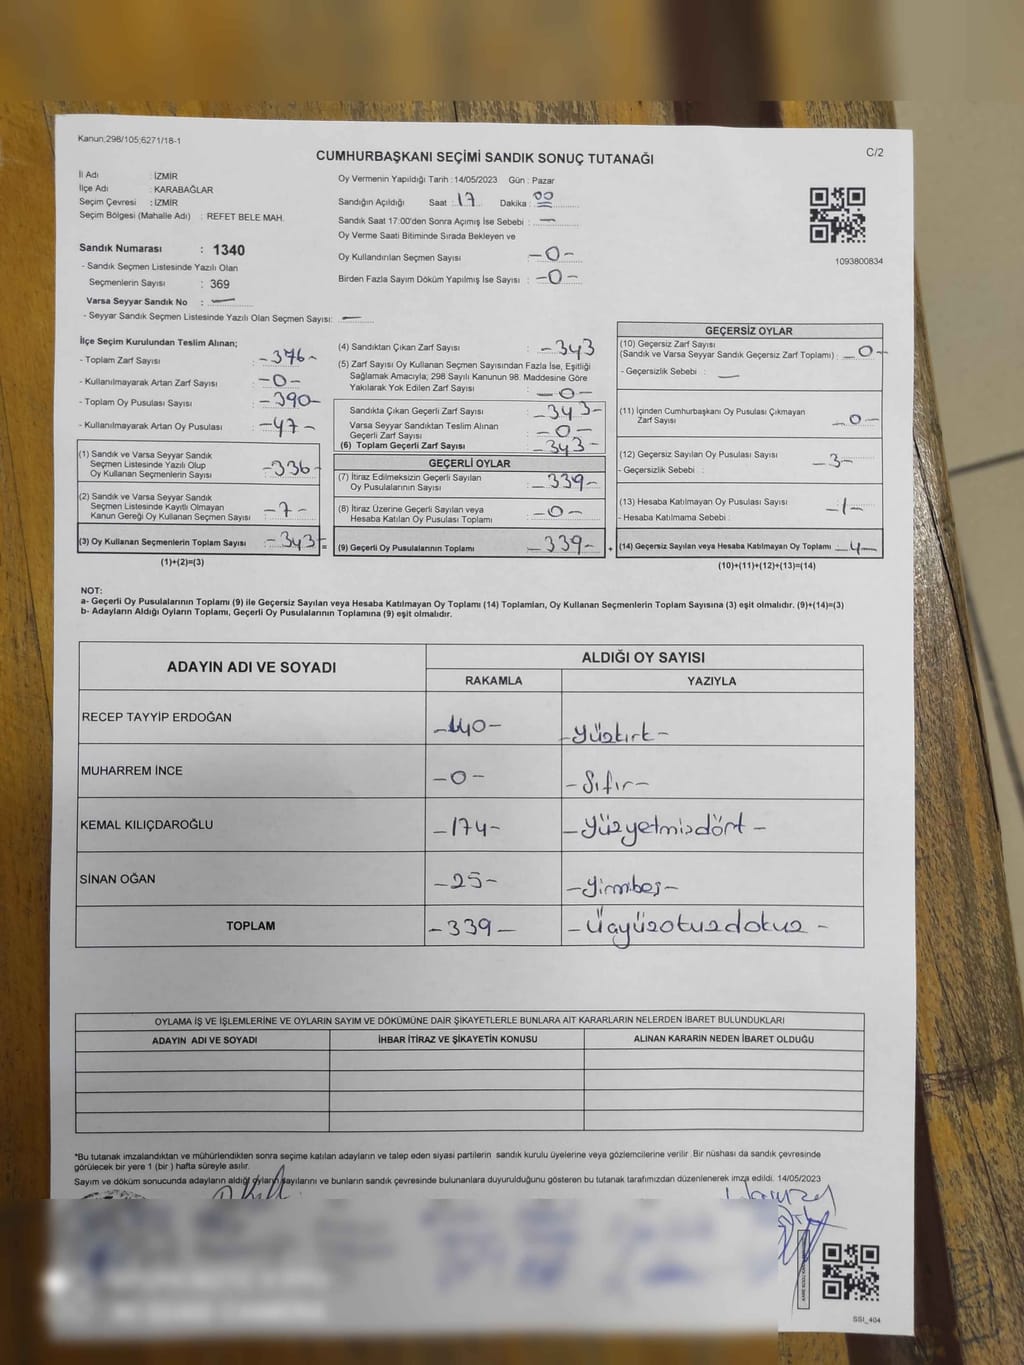 Kanun;298/105;6271/18-1
C/2
CUMHURBAŞKANI SEÇİMİ SANDIK SONUÇ TUTANAĞI
İl Adı : İZMİR
İlçe Adı : KARABAĞLAR
Seçim Çevresi : İZMİR
Seçim Bölgesi (Mahalle Adı) : REFET BELE MAH.
Sandık Numarası : 1340
- Sandık Seçmen Listesinde Yazılı Olan
Seçmenlerin Sayısı : 369
Varsa Seyyar Sandık No : —
- Seyyar Sandık Seçmen Listesinde Yazılı Olan Seçmen Sayısı: —
Oy Vermenin Yapıldığı Tarih : 14/05/2023 Gün : Pazar
Sandığın Açıldığı Saat : 17 Dakika : 00
Sandık Saat 17:00'den Sonra Açımış İse Sebebi : —
Oy Verme Saati Bitiminde Sırada Bekleyen ve
Oy Kullandırılan Seçmen Sayısı : -0-
Birden Fazla Sayım Döküm Yapılmış İse Sayısı : -0-
1093800834
İlçe Seçim Kurulundan Teslim Alınan;
- Toplam Zarf Sayısı : -376-
- Kullanılmayarak Artan Zarf Sayısı : -0-
- Toplam Oy Pusulası Sayısı : -390-
- Kullanılmayarak Artan Oy Pusulası : -47-
(1) Sandık ve Varsa Seyyar Sandık
Seçmen Listesinde Yazılı Olup
Oy Kullanan Seçmenlerin Sayısı : -336-
(2) Sandık ve Varsa Seyyar Sandık
Seçmen Listesinde Kayıtlı Olmayan
Kanun Gereği Oy Kullanan Seçmen Sayısı : -7-
(3) Oy Kullanan Seçmenlerin Toplam Sayısı : -343- =
(1)+(2)=(3)
(4) Sandıktan Çıkan Zarf Sayısı : -343
(5) Zarf Sayısı Oy Kullanan Seçmen Sayısından Fazla İse, Eşitliği
Sağlamak Amacıyla; 298 Sayılı Kanunun 98. Maddesine Göre
Yakılarak Yok Edilen Zarf Sayısı : -0-
Sandıkta Çıkan Geçerli Zarf Sayısı : -343-
Varsa Seyyar Sandıktan Teslim Alınan
Geçerli Zarf Sayısı : -0-
(6) Toplam Geçerli Zarf Sayısı : -343-
GEÇERLİ OYLAR
(7) İtiraz Edilmeksizin Geçerli Sayılan
Oy Pusulalarının Sayısı : -339-
(8) İtiraz Üzerine Geçerli Sayılan veya
Hesaba Katılan Oy Pusulası Toplamı : -0-
(9) Geçerli Oy Pusulalarının Toplamı : -339- +
GEÇERSİZ OYLAR
(10) Geçersiz Zarf Sayısı
(Sandık ve Varsa Seyyar Sandık Geçersiz Zarf Toplamı) : -0-
- Geçersizlik Sebebi : —
(11) İçinden Cumhurbaşkanı Oy Pusulası Çıkmayan
Zarf Sayısı : -0-
(12) Geçersiz Sayılan Oy Pusulası Sayısı : -3-
- Geçersizlik Sebebi :
(13) Hesaba Katılmayan Oy Pusulası Sayısı : -1-
- Hesaba Katılmama Sebebi :
(14) Geçersiz Sayılan veya Hesaba Katılmayan Oy Toplamı : -4-
(10)+(11)+(12)+(13)=(14)
NOT:
a- Geçerli Oy Pusulalarının Toplamı (9) ile Geçersiz Sayılan veya Hesaba Katılmayan Oy Toplamı (14) Toplamları, Oy Kullanan Seçmenlerin Toplam Sayısına (3) eşit olmalıdır. (9)+(14)=(3)
b- Adayların Aldığı Oyların Toplamı, Geçerli Oy Pusulalarının Toplamına (9) eşit olmalıdır.
ADAYIN ADI VE SOYADI
ALDIĞI OY SAYISI
RAKAMLA YAZIYLA
RECEP TAYYİP ERDOĞAN -140- -Yüzkırk-
MUHARREM İNCE -0- -Sıfır-
KEMAL KILIÇDAROĞLU -174- -Yüzyetmişdört-
SİNAN OĞAN -25- -Yirmibeş-
TOPLAM -339- -Üçyüzotuzdokuz-
OYLAMA İŞ VE İŞLEMLERİNE VE OYLARIN SAYIM VE DÖKÜMÜNE DAİR ŞİKAYETLERLE BUNLARA AİT KARARLARIN NELERDEN İBARET BULUNDUKLARI
ADAYIN ADI VE SOYADI İHBAR İTİRAZ VE ŞİKAYETİN KONUSU ALINAN KARARIN NEDEN İBARET OLDUĞU
*Bu tutanak imzalandıktan ve mühürlendikten sonra seçime katılan adayların ve talep eden siyasi partilerin sandık kurulu üyelerine veya gözlemcilerine verilir .Bir nüshası da sandık çevresinde
görülecek bir yere 1 (bir ) hafta süreyle asılır.
Sayım ve döküm sonucunda adayların aldığı oyların sayılarını ve bunların sandık çevresinde bulunanlara duyurulduğunu gösteren bu tutanak tarafımızdan düzenlenerek imza edildi. 14/05/2023
SSI_404